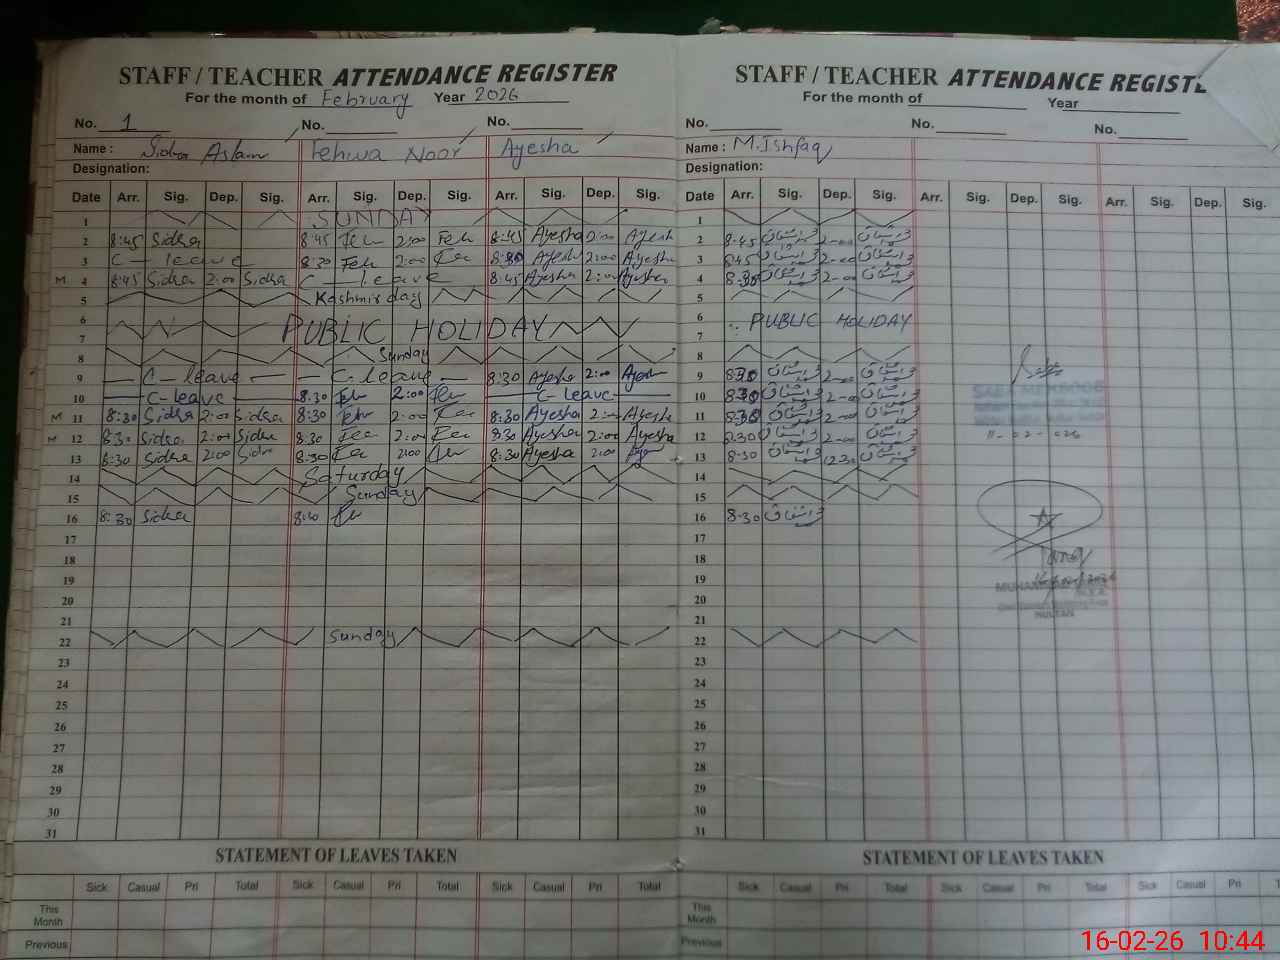 STAFF / TEACHER ATTENDANCE REGISTER
For the month of February Year 2026
No. 1 No. No.
Name : Sidra Aslam Fehwa Noor Ayesha
Designation:
Date Arr. Sig. Dep. Sig. Arr. Sig. Dep. Sig. Arr. Sig. Dep. Sig.
1 SUNDAY
2 8:45 Sidra 8:45 Feh 2:00 Feh 8:45 Ayesha 2:00 Ayesh
3 C - leave 8:30 Feh 2:00 8:30 Ayesh 2:00 Ayesha
M 4 8:45 Sidra 2:00 Sidra C - leave 8:45 Ayesha 2:00 Ayesha
5 Kashmir day
6
7 PUBLIC HOLIDAY
8 Sunday
9 C - leave C - leave 8:30 Ayesha 2:00 Ayesh
10 C - leave 8:30 2:00 C - leave
M 11 8:30 Sidra 2:00 Sidra 8:30 2:00 8:30 Ayesha 2:00 Ayesha
M 12 8:30 Sidra 2:00 Sidra 8:30 2:00 8:30 Ayesha 2:00 Ayesha
13 8:30 Sidra 2:00 Sidra 8:30 2:00 8:30 Ayesha 2:00
14 Saturday
15 Sunday
16 8:30 Sidra 8:30
17
18
19
20
21
22 Sunday
23
24
25
26
27
28
29
30
31
STATEMENT OF LEAVES TAKEN
Sick Casual Pri Total Sick Casual Pri Total Sick Casual Pri Total
This Month
Previous
STAFF / TEACHER ATTENDANCE REGISTE
For the month of Year
No. No. No.
Name : M. Ishfaq
Designation:
Date Arr. Sig. Dep. Sig. Arr. Sig. Dep. Sig. Arr. Sig. Dep. Sig.
1
2 8-45 2-00
3 8-45 2-00
4 8-30 2-00
5
6 PUBLIC HOLIDAY
7
8
9 8-30 2-00
10 8-30 2-00
11 8-30 2-00
11-02-026
12 8-30 2-00
13 8-30 12-30
14
15
16 8-30
17
18
19
20
MULTAN
21
22
23
24
25
26
27
28
29
30
31
STATEMENT OF LEAVES TAKEN
Sick Casual Pri Total Sick Casual Pri Total Sick Casual Pri
This Month
Previous
16-02-26 10:44